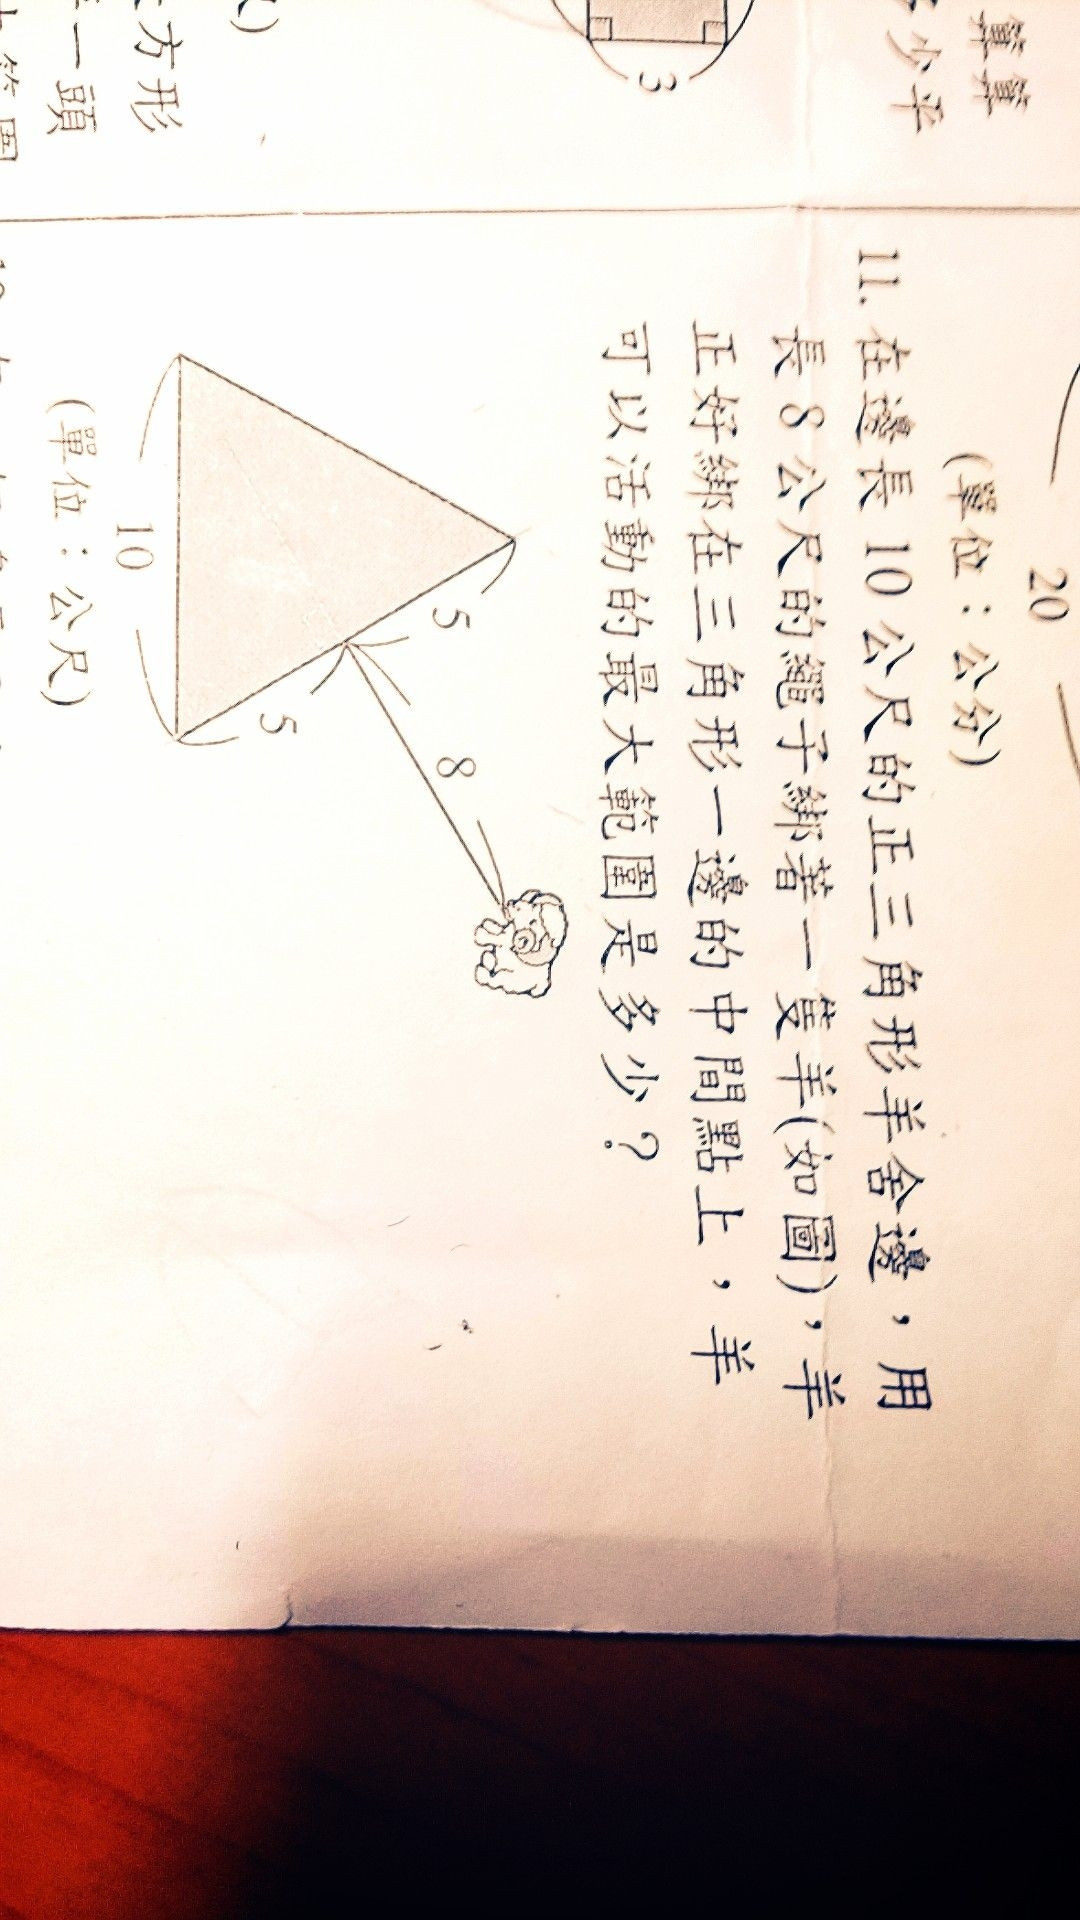 算算
少平
3
方形
一頭
20
(單位：公分)
11. 在邊長 10 公尺的正三角形羊舍邊，用
長 8 公尺的繩子綁著一隻羊(如圖)，羊
正好綁在三角形一邊的中間點上，羊
可以活動的最大範圍是多少？
5
5
8
10
(單位：公尺)